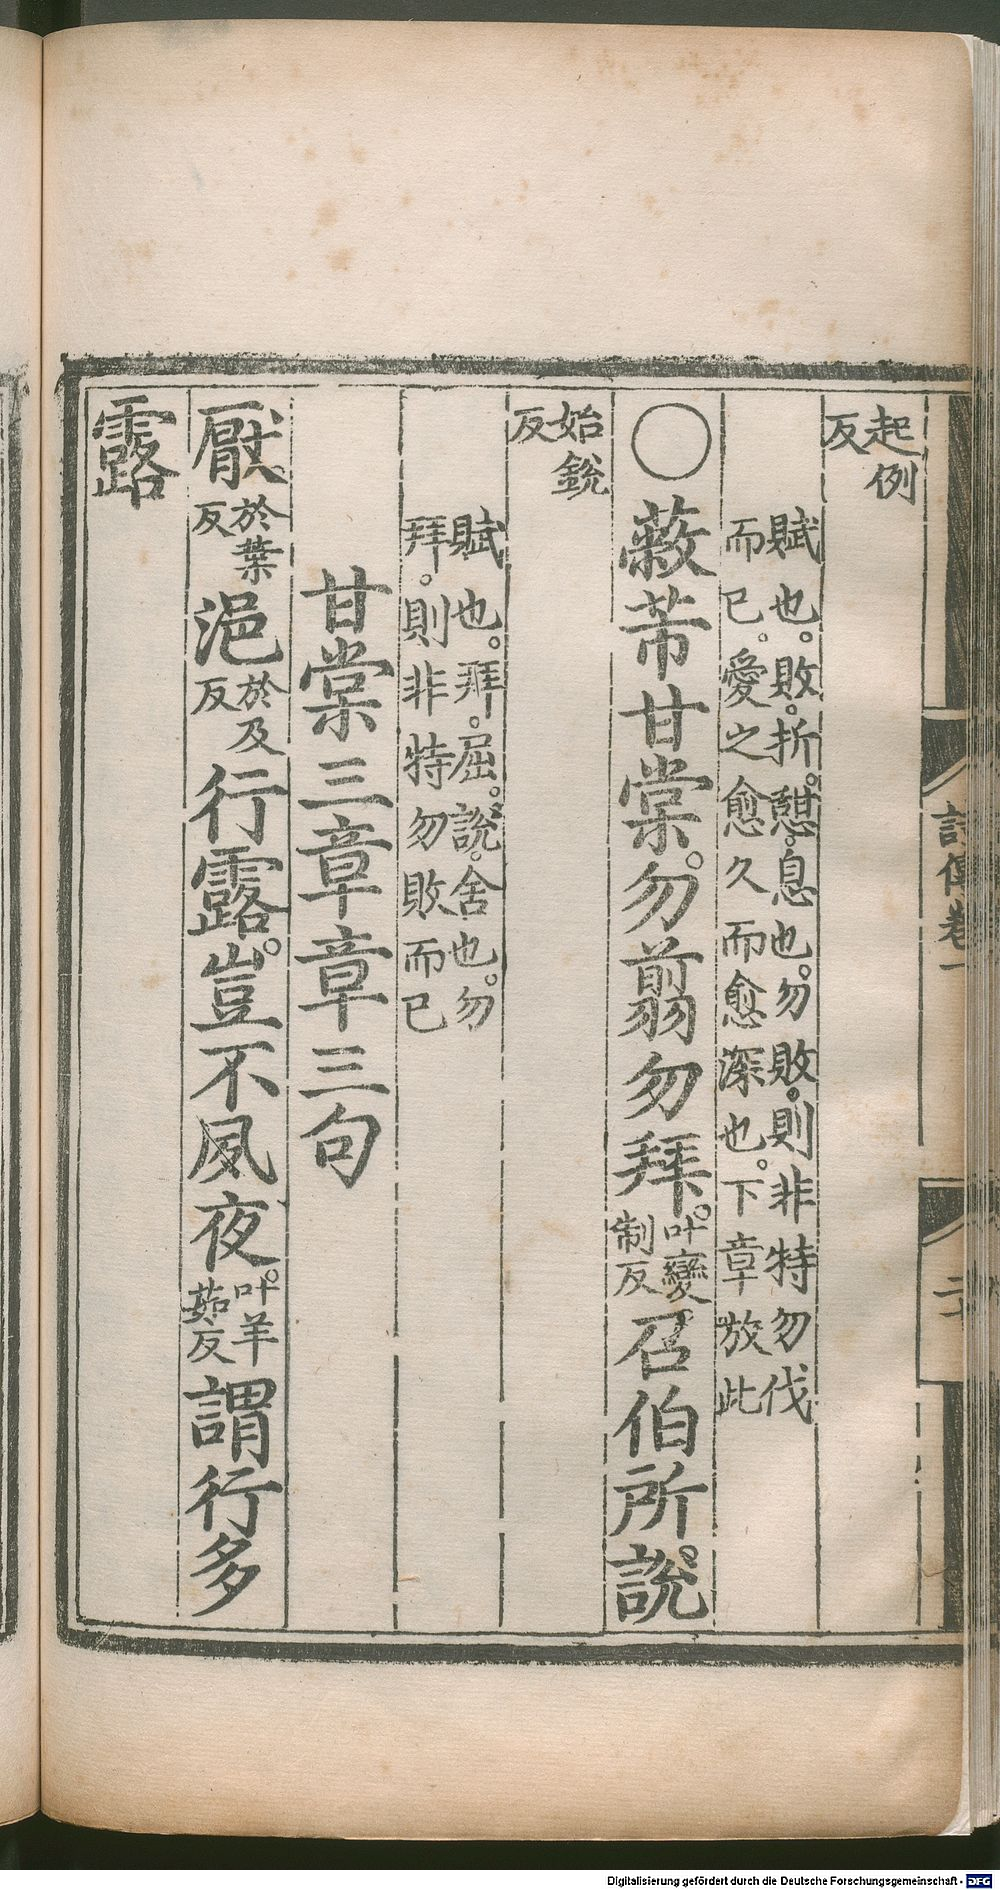 詩傳卷一
二十
起例
反
賦也。敗。折。憩。息也。勿敗。則非特勿伐
而已。愛之愈久而愈深也。下章放此
○蔽芾甘棠。勿翦勿拜。叶變制反召伯所說。
始銳
反
賦也。拜。屈。說。舍也。勿
拜。則非特勿敗而已
甘棠三章章三句
厭。於葉反浥於及反行露。豈不夙夜。叶羊茹反謂行多
露
Digitalisierung gefördert durch die Deutsche Forschungsgemeinschaft - DFG